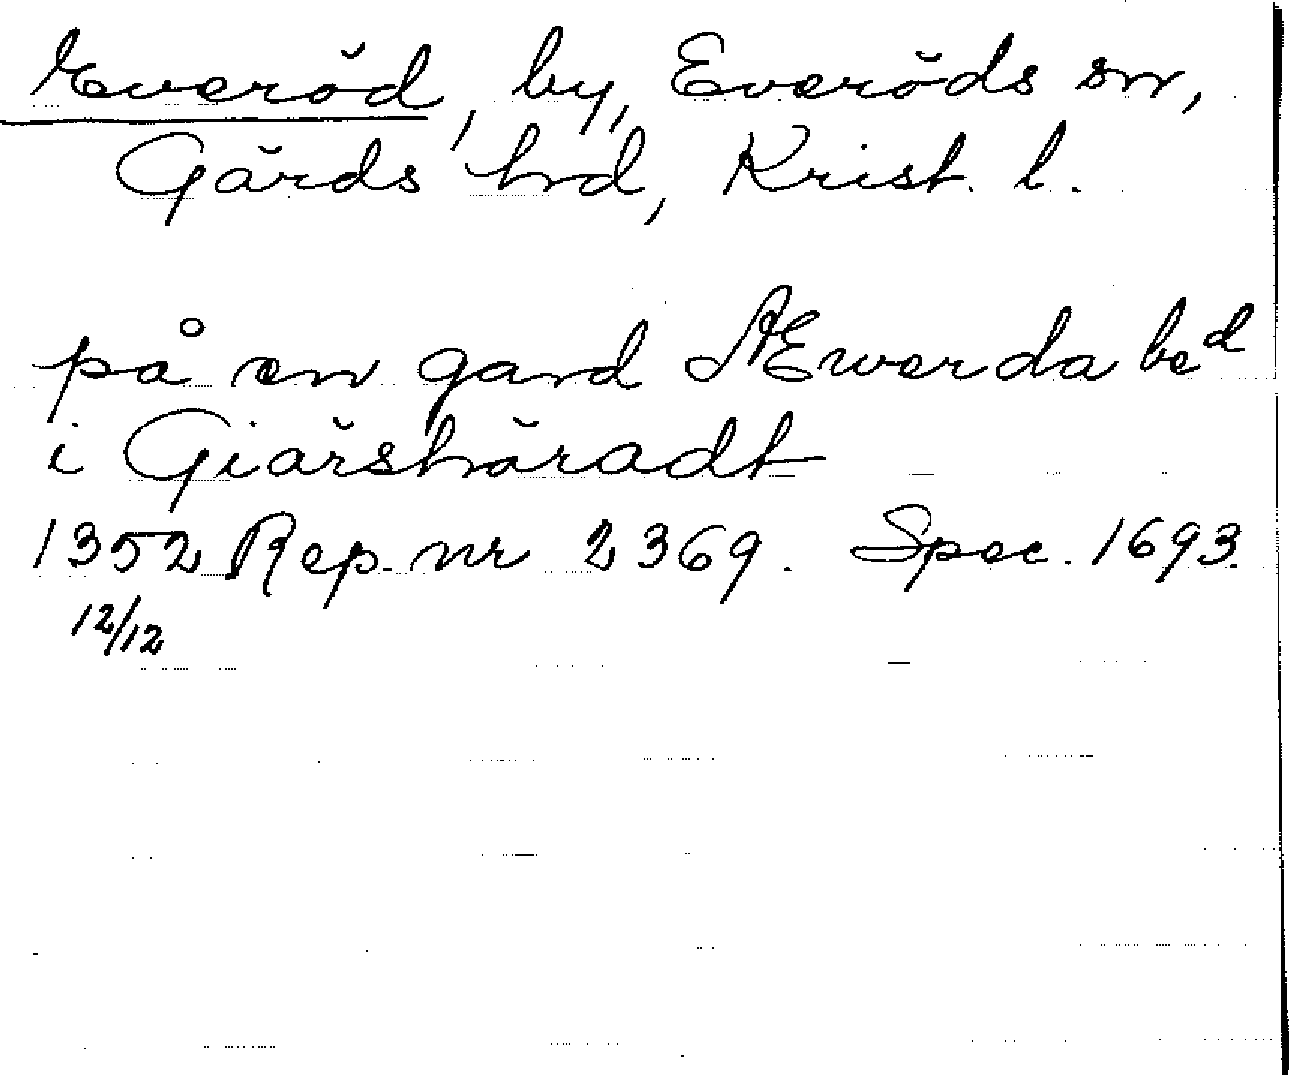 Everöd, by, Everöds sn,
Gärds hrd, Krist. l.
på en gard Æwerda be^d
i Giärshäradt
1352 Rep. nr 2369. Spec. 1693.
12/12